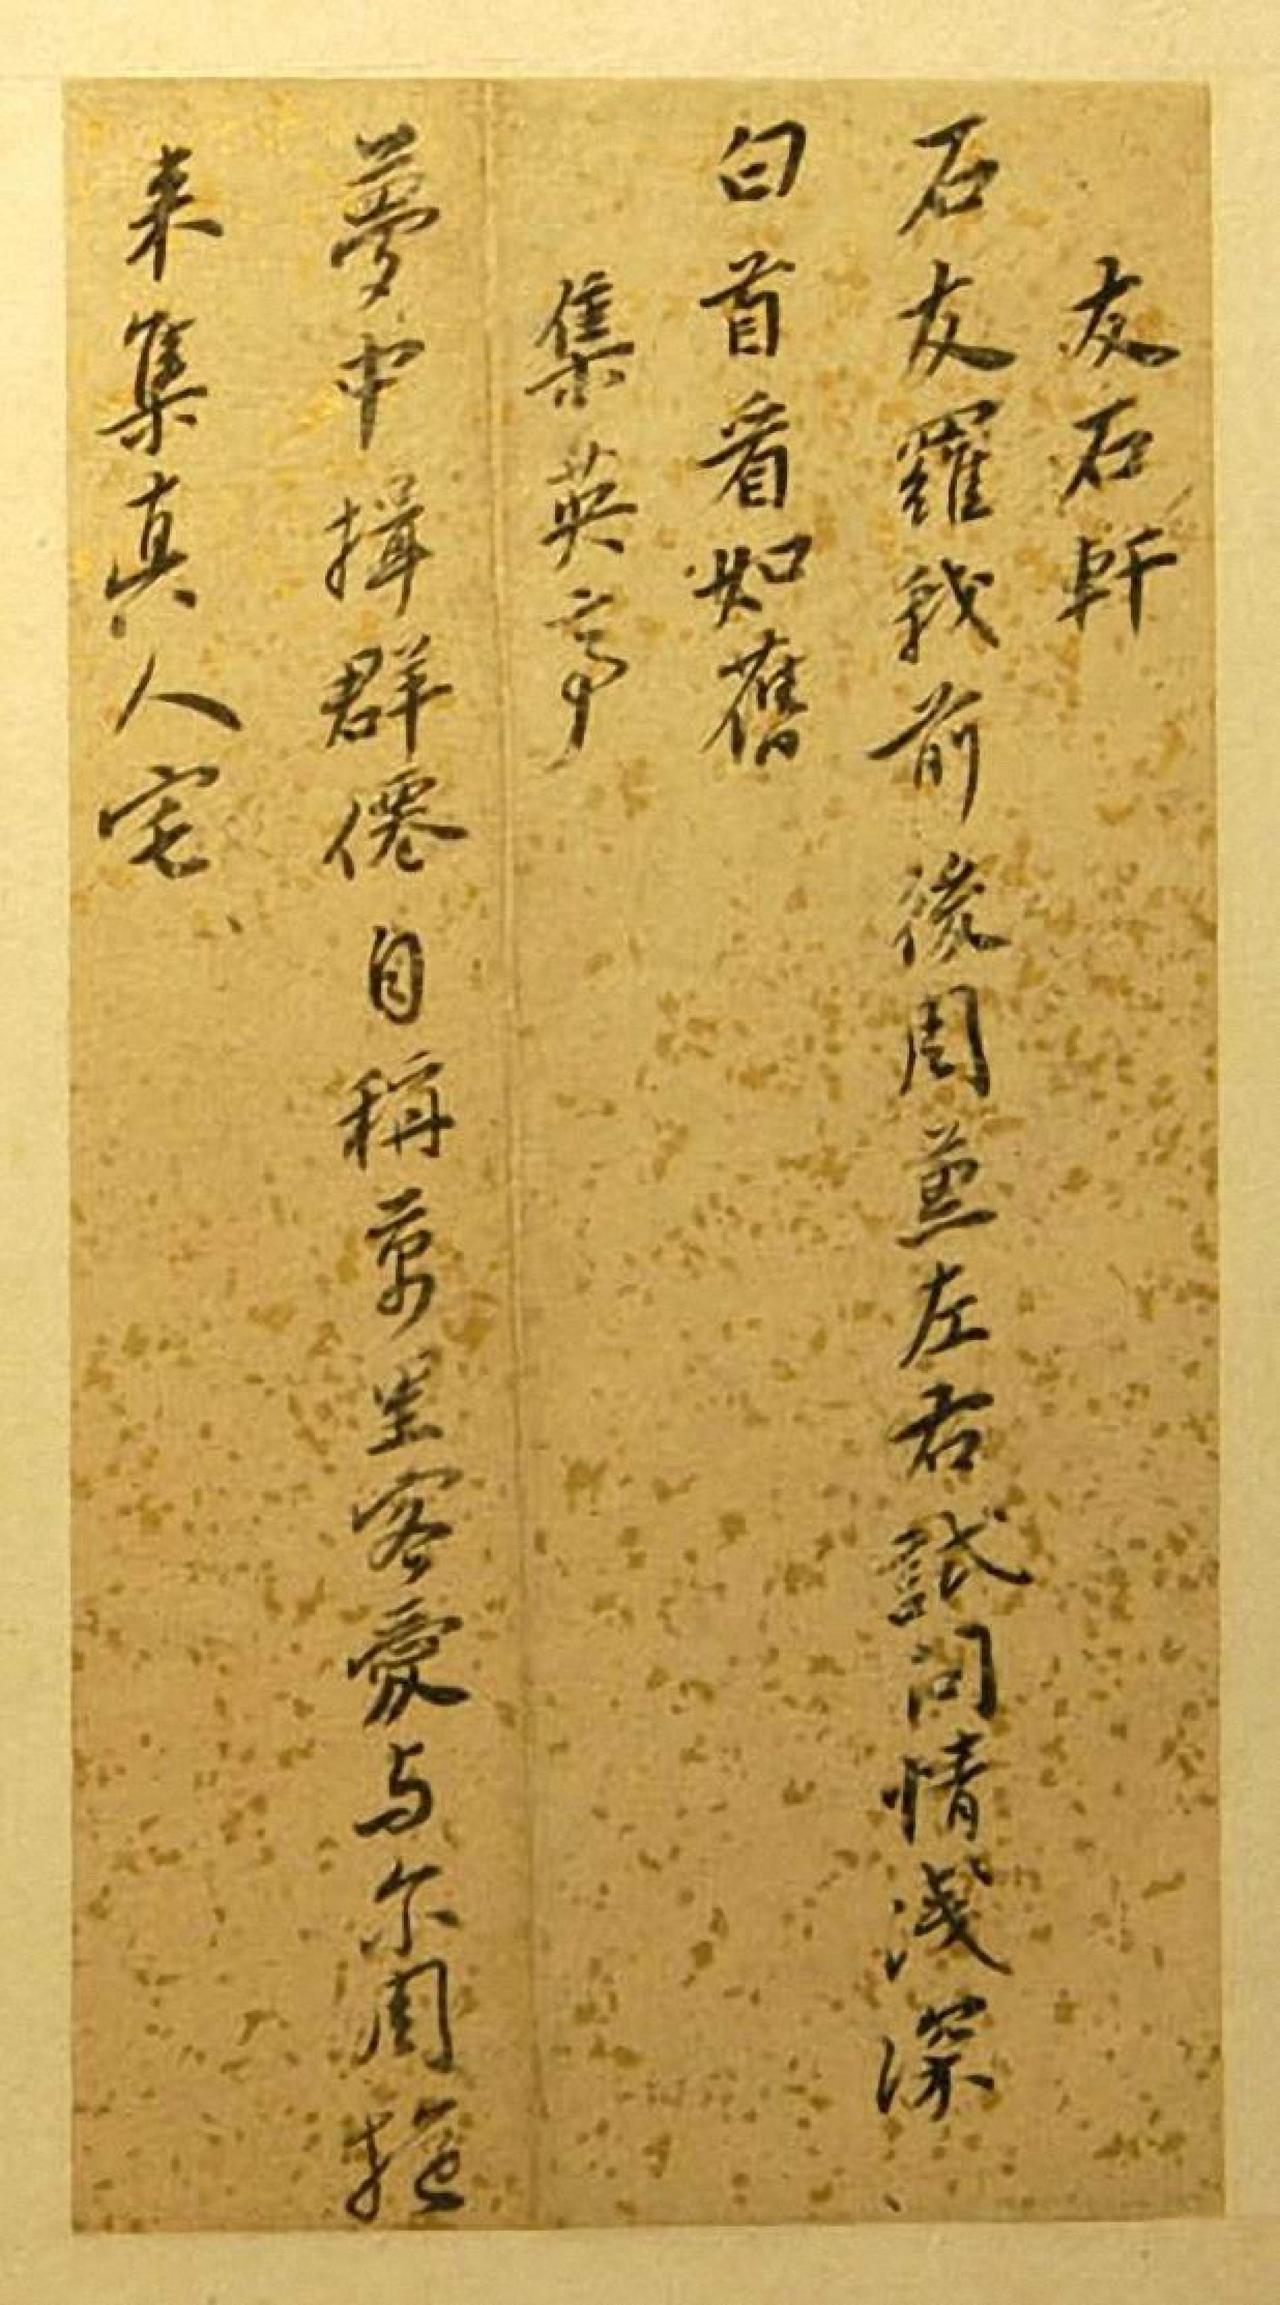 友石軒
石友羅我前後周兼左右試問情淺深
白首看如舊
集英亭
夢中揖群僊自稱京里客愛与尔周旋
来集真人宅